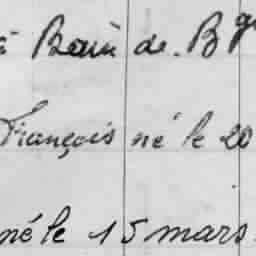 à Bain de. Bg
François né le 20
né le 15 mars